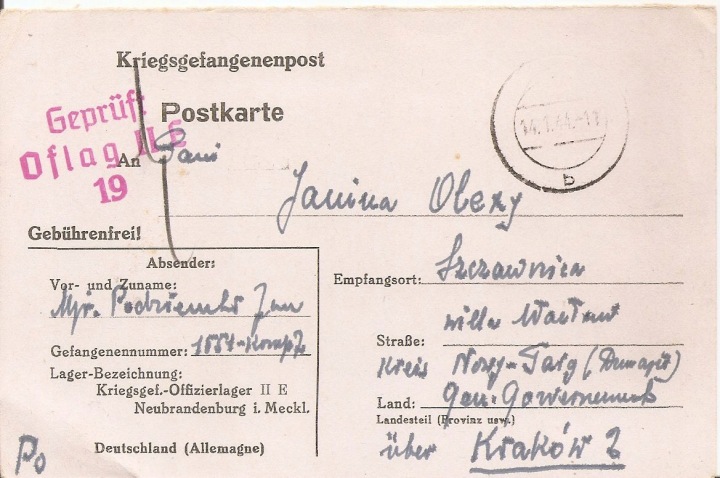 Kriegsgefangenenpost
Postkarte
Geprüft
Oflag II E
19
14.1.44.-11
b
An Pani
Janina Obezy
Gebührenfrei!
Absender:
Vor- und Zuname:
Mjr. Jan
Gefangenennummer: 1557-Komp
Lager-Bezeichnung:
Kriegsgef.-Offizierlager II E
Neubrandenburg i. Meckl.
Deutschland (Allemagne)
Po
Empfangsort: Szczawnica
willa
Straße:
Kreis Nowy-Targ (Dunajec)
Land: Gen-Gouvernement
Landesteil (Provinz usw.)
über Kraków 2